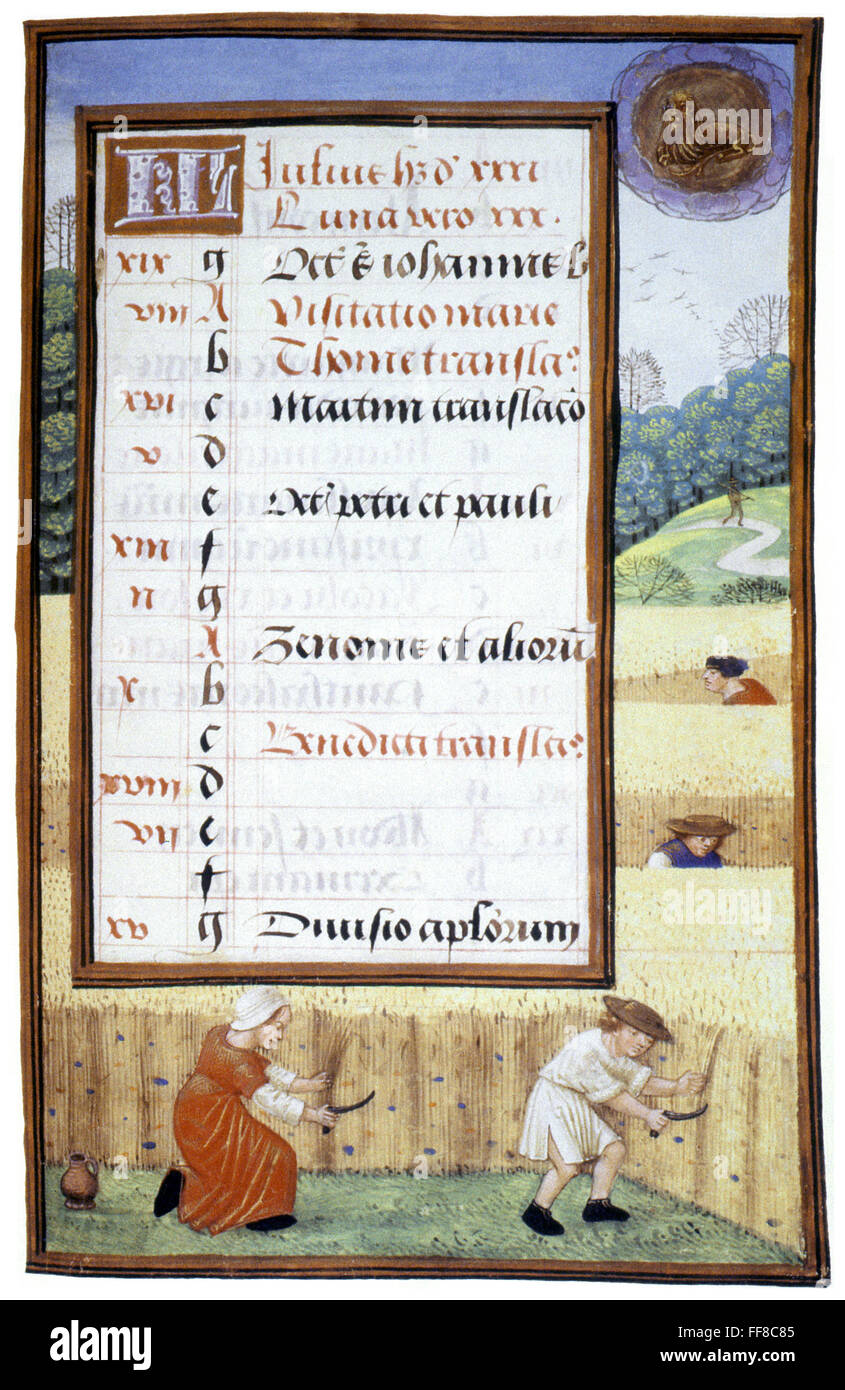 KL Julius hz d' xxxi
Luna vero xxx.
xix g Oct' s' iohannis b
viii A Visitatio marie
b Thome transla?
xvi c Martini translac̃o
v d
e Oct' petri et pauli
xiii f
ii g
A Zenonis et aliorũ
x b
c Benedicti transla?
xviii d
vii e
f
xv g Divisio apl'orum
alamy
Image ID: FF8C85
www.alamy.com